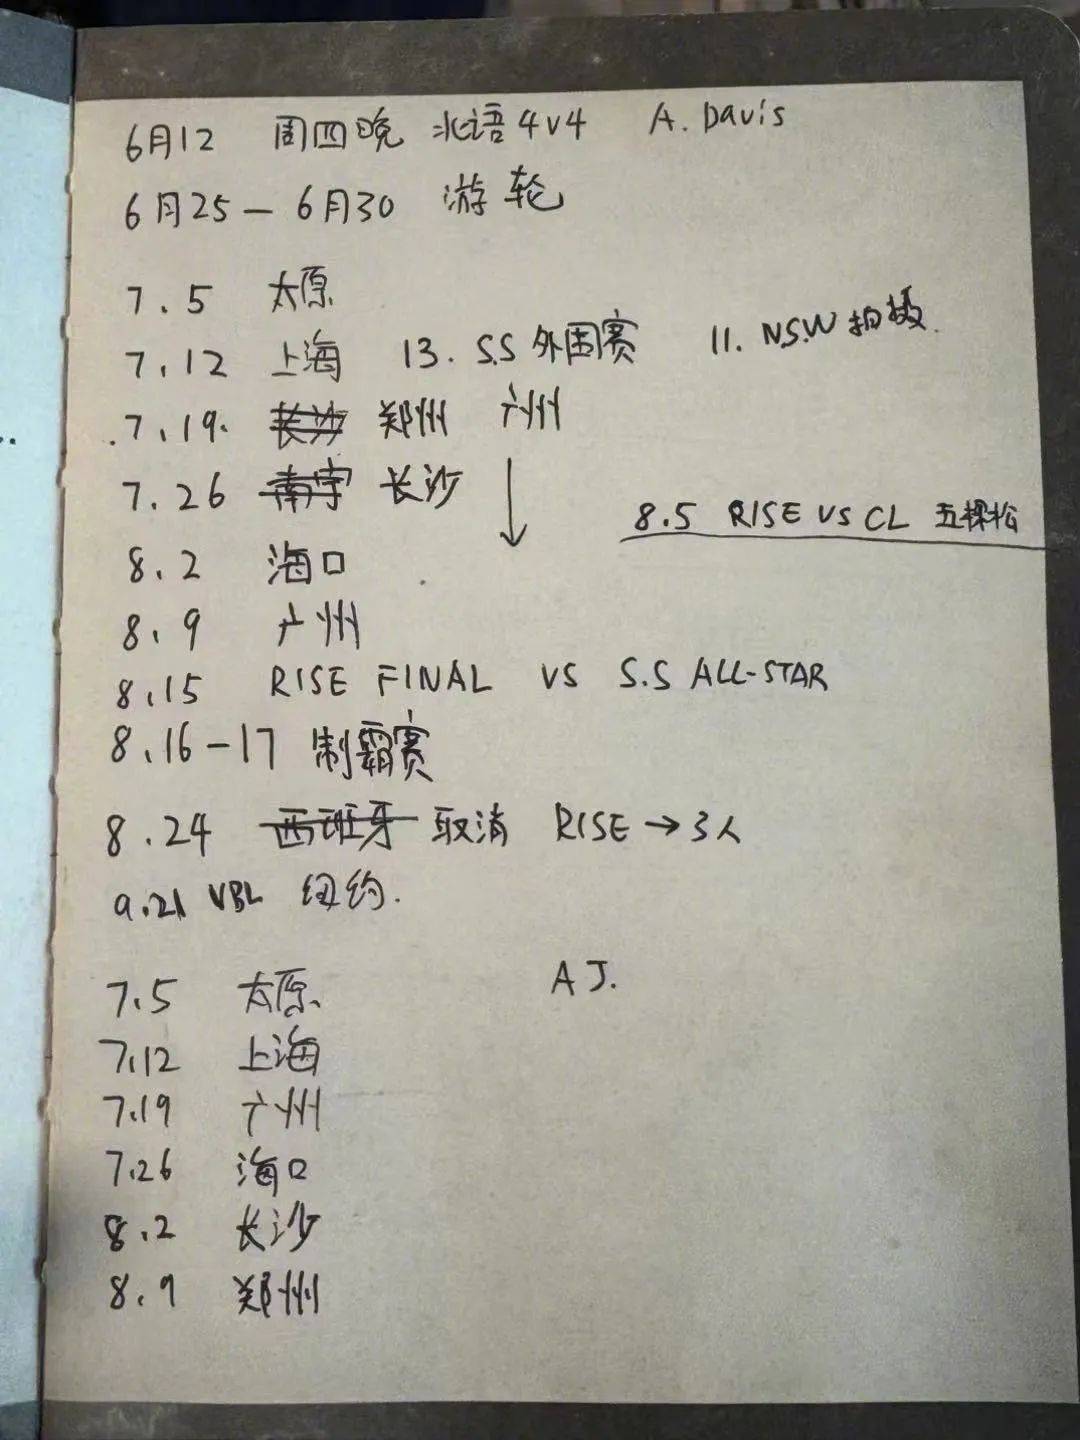 6月12 周四晚 北语4V4 A. Davis
6月25 — 6月30 游轮
7.5 太原
7.12 上海 13. S.S 外围赛 11. N.S.W 拍摄.
7.19. 长沙 郑州 广州
7.26 南宁 长沙
8.5 RISE VS CL 五棵松
8.2 海口
8.9 广州
8.15 RISE FINAL VS S.S ALL-STAR
8.16-17 制霸赛
8.24 西班牙 取消 RISE → 3人
9.21 VBL 纽约.
7.5 太原 A J.
7.12 上海
7.19 广州
7.26 海口
8.2 长沙
8.9 郑州